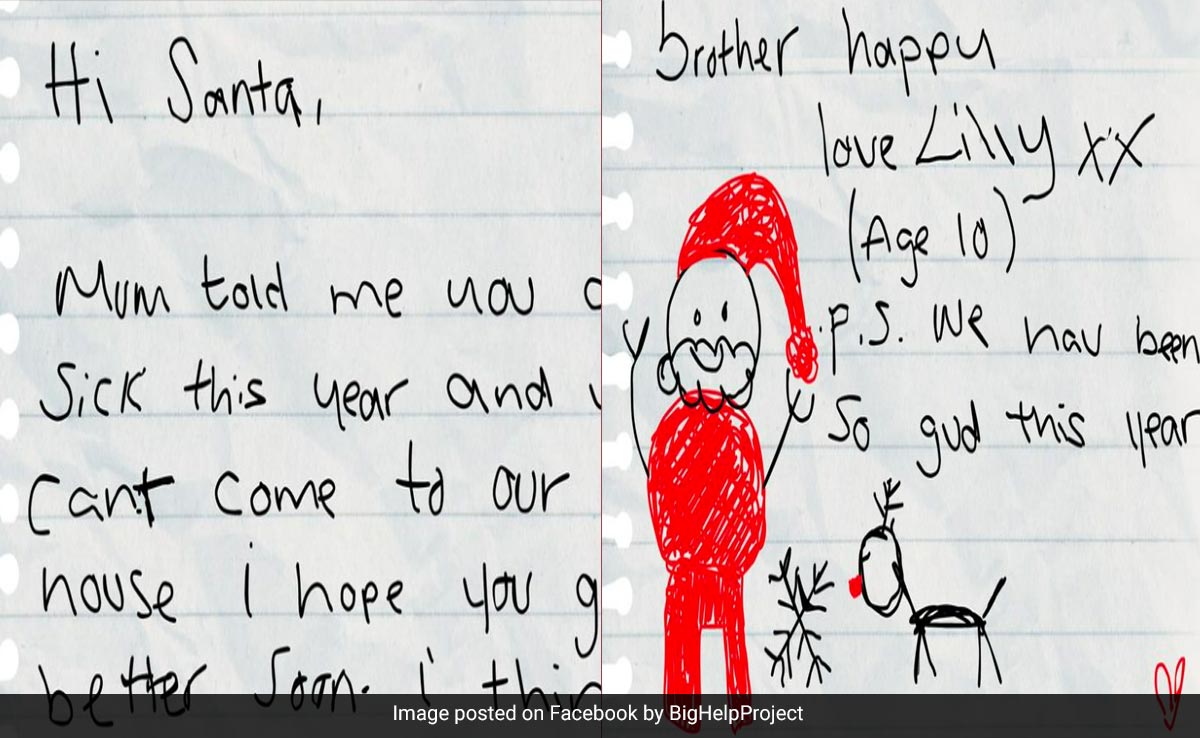 Hi Santa,
Mum told me you
Sick this year and
cant come to our
house i hope you g
better soon. i thin
brother happy
love Lilly xx
(Age 10)
P.S. We hav been
So gud this year
Image posted on Facebook by BigHelpProject